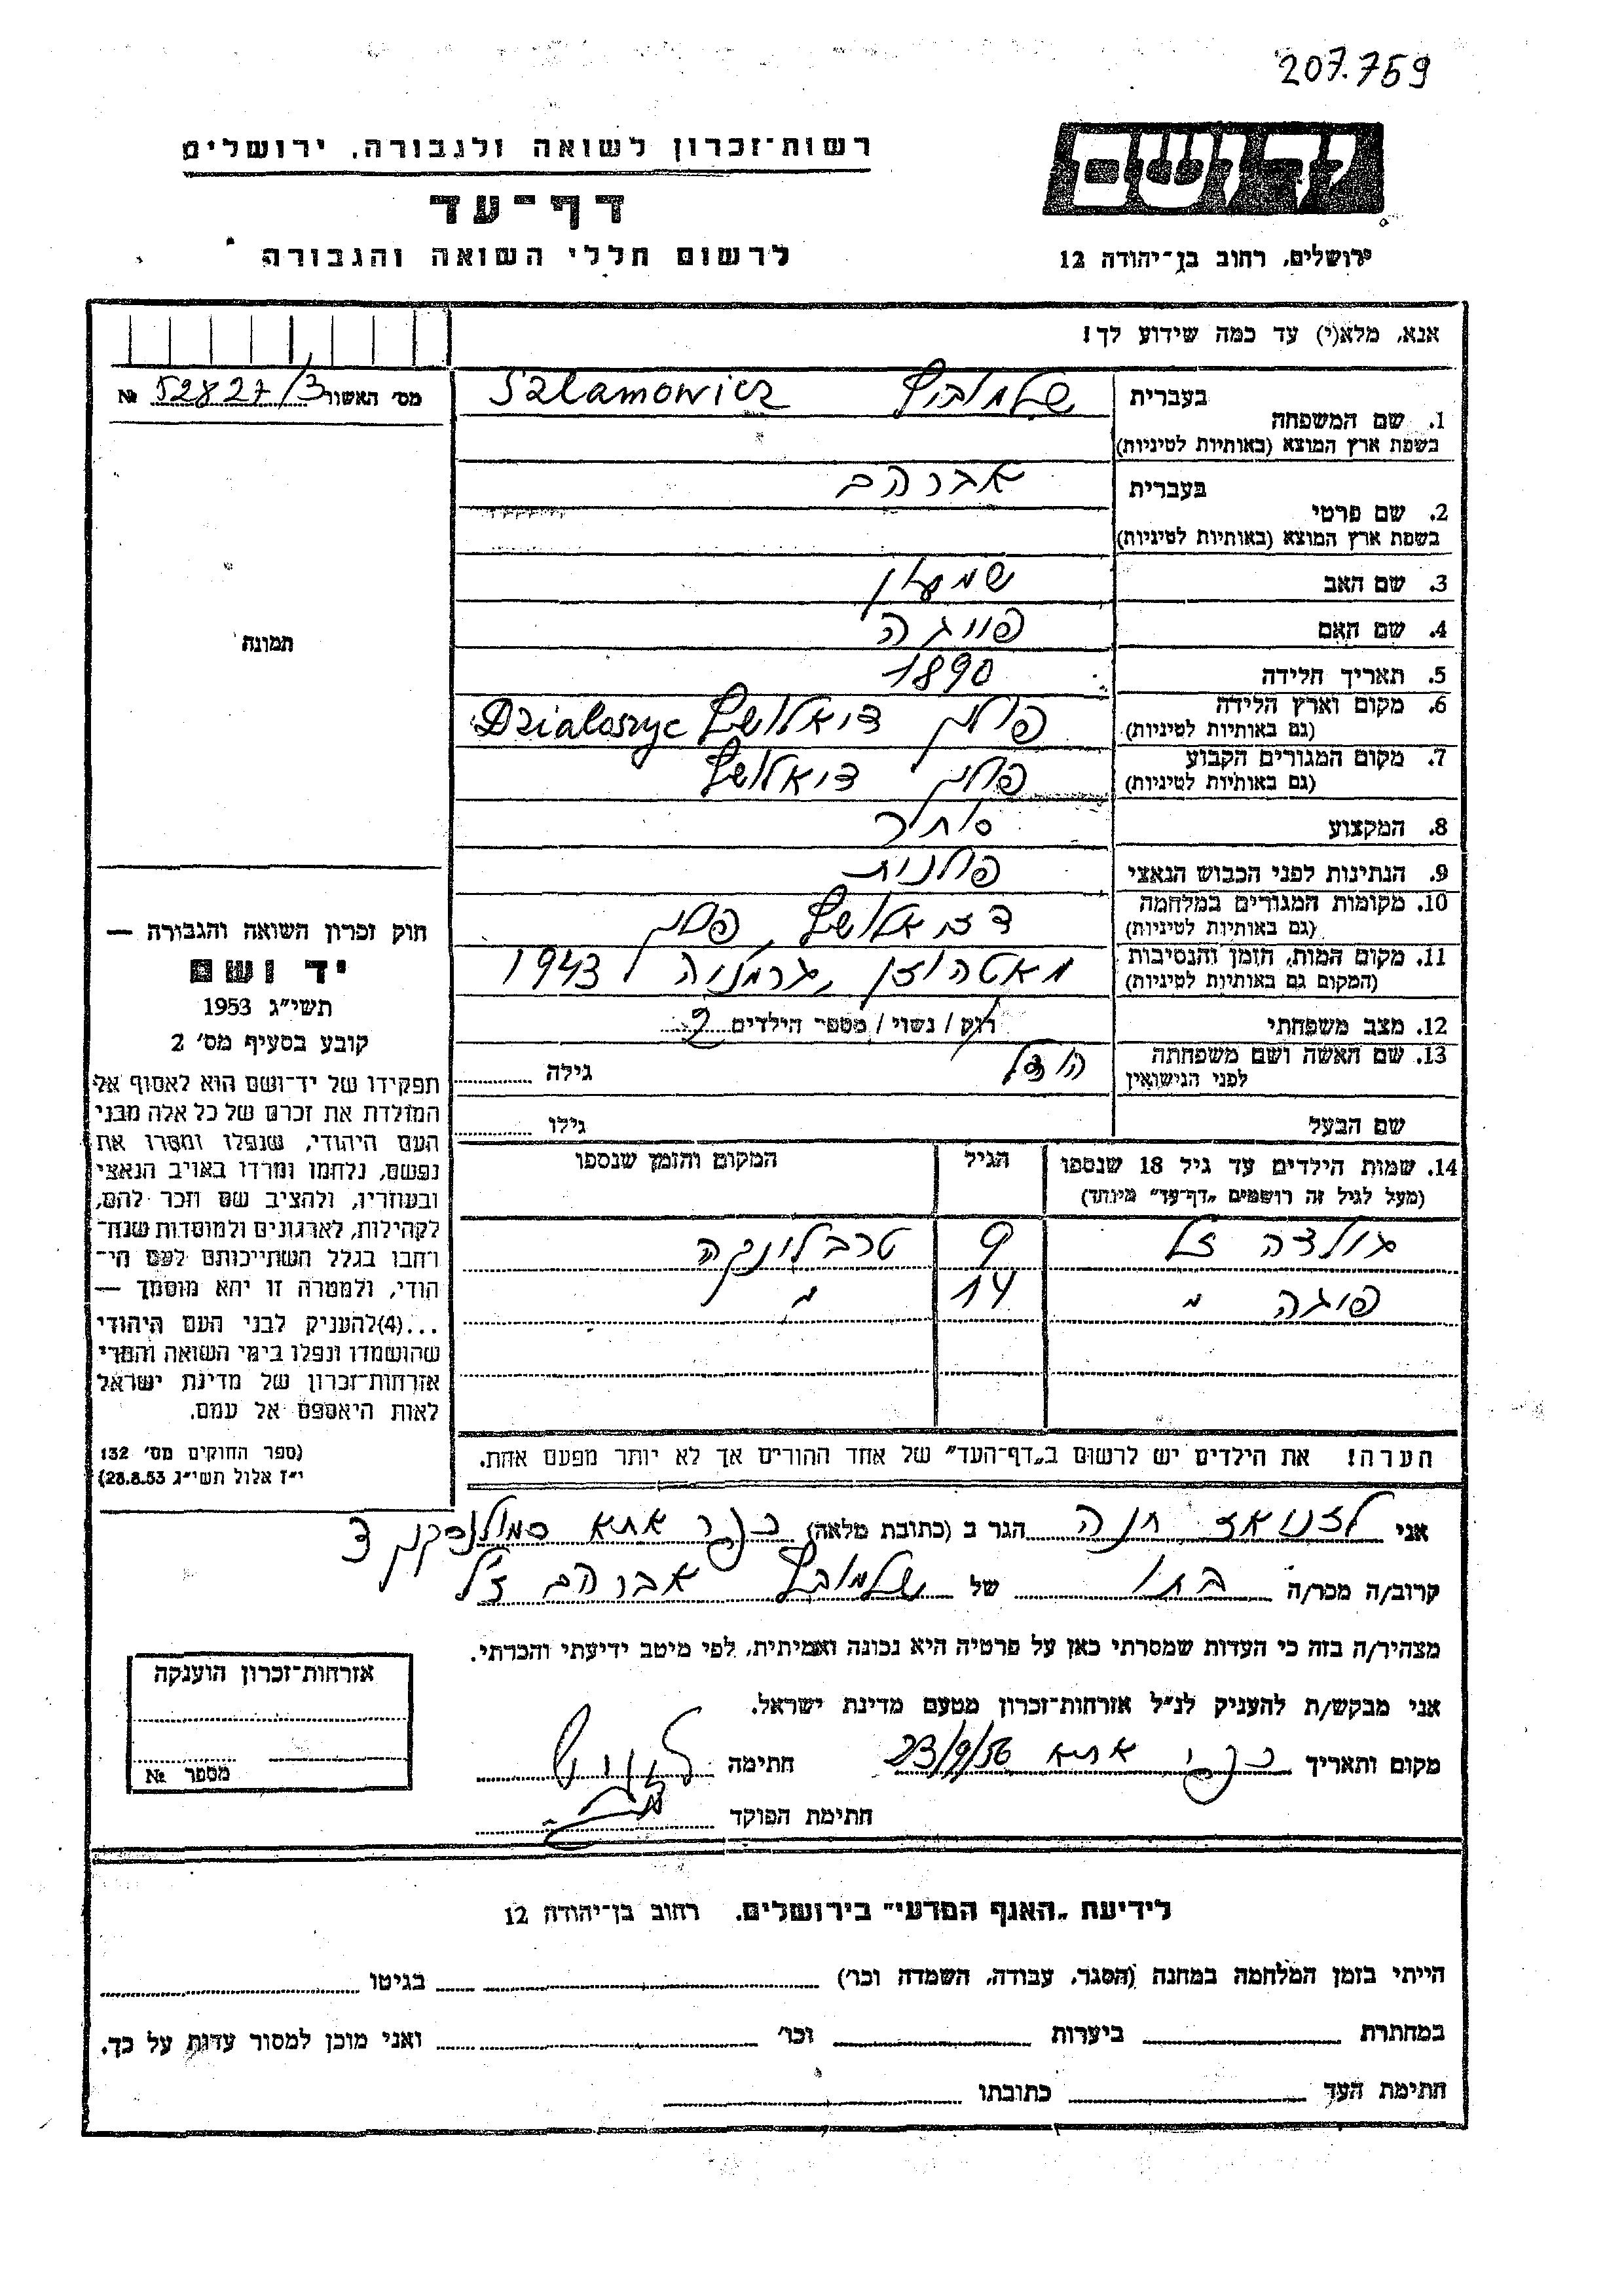 207.759
רשות-זכרון לשואה ולגבורה, ירושלים
יד ושם
דף-עד
לרשום חללי השואה והגבורה
ירושלים, רחוב בן-יהודה 12
אנא, מלא(י) עד כמה שידוע לך!
מס' האשור 52827/3 №
בעברית שלמוביץ Szlamowicz
1. שם המשפחה
בשפת ארץ המוצא (באותיות לטיניות)
בעברית אברהם
2. שם פרטי
בשפת ארץ המוצא (באותיות לטיניות)
3. שם האב שמעון
4. שם האם פייגה
5. תאריך הלידה 1890
6. מקום וארץ הלידה פולין דיאלושץ Dzialoszyc
(גם באותיות לטיניות)
7. מקום המגורים הקבוע פולין דיאלושץ
(גם באותיות לטיניות)
8. המקצוע סוחר
9. הנתינות לפני הכבוש הנאצי פולנית
10. מקומות המגורים במלחמה דזיאלושץ פולין
(גם באותיות לטיניות)
11. מקום המות, הזמן והנסיבות מאטהוזן, גרמניה 1943
(המקום גם באותיות לטיניות)
12. מצב משפחתי רווק / נשוי / מספר הילדים 2
13. שם האשה ושם משפחתה הודל גילה
לפני הנישואין
שם הבעל גילו
14. שמות הילדים עד גיל 18 שנספו הגיל המקום והזמן שנספו
(מעל לגיל זה רושמים „דף-עד" מיוחד)
גולדה ז"ל 9 טרבלינקה
פיגה " 14 "
הערה! את הילדים יש לרשום ב„דף-העד" של אחד ההורים אך לא יותר מפעם אחת.
תמונה
חוק זכרון השואה והגבורה —
יד ושם
תשי"ג 1953
קובע בסעיף מס' 2
תפקידו של יד-ושם הוא לאסוף אל
המולדת את זכרם של כל אלה מבני
העם היהודי, שנפלו ומסרו את
נפשם, נלחמו ומרדו באויב הנאצי
ובעוזריו, ולהציב שם וזכר להם,
לקהילות, לארגונים ולמוסדות שנח-
רבו בגלל השתייכותם לעם הי-
הודי, ולמטרה זו יהא מוסמך —
...(4) להעניק לבני העם היהודי
שהושמדו ונפלו בימי השואה והמרי
אזרחות-זכרון של מדינת ישראל
לאות היאספם אל עמם.
(ספר החוקים מס' 132
י"ז אלול תשי"ג 28.8.53)
אני חנה הגר ב (כתובת מלאה) כפר אתא
קרוב/ה מכר/ה בתו של שלמוביץ אברהם ז"ל
מצהיר/ה בזה כי העדות שמסרתי כאן על פרטיה היא נכונה ואמיתית, לפי מיטב ידיעתי והכרתי.
אני מבקש/ת להעניק לנ"ל אזרחות-זכרון מטעם מדינת ישראל.
מקום ותאריך כפר אתא 23/9/56 חתימה
חתימת הפוקד
אזרחות-זכרון הוענקה
מספר №
לידיעת „האגף המדעי" בירושלים, רחוב בן-יהודה 12
הייתי בזמן המלחמה במחנה (הסגר, עבודה, השמדה וכו') בגיטו
במחתרת ביערות וכו' ואני מוכן למסור עדות על כך.
חתימת העד כתובתו